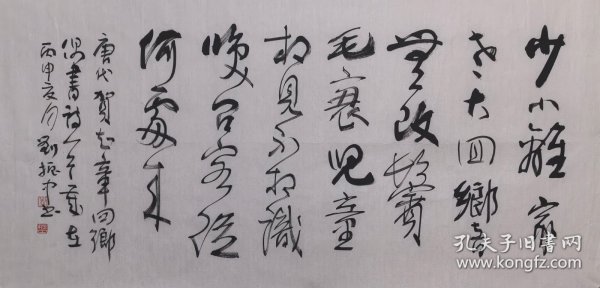 少小離家
老大回鄉音
無改鬢
毛衰兒童
相見不相識
咲問客從
何處來
唐代賀知章回鄉
偶書詩一首歲在
丙申夏月劉振書
孔夫子旧书网
www.kongfz.com